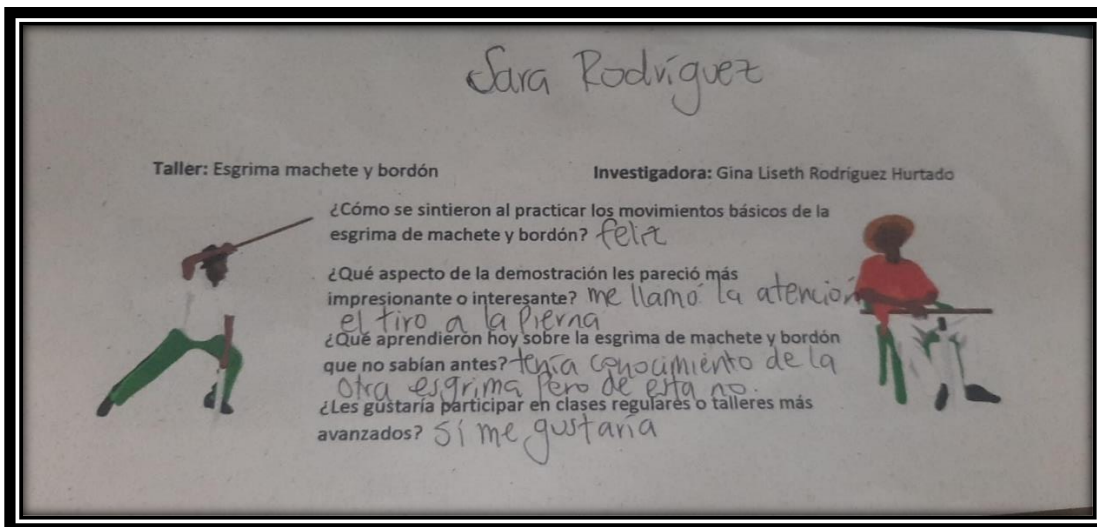 Sara Rodríguez
Taller: Esgrima machete y bordón
Investigadora: Gina Liseth Rodríguez Hurtado
¿Cómo se sintieron al practicar los movimientos básicos de la
esgrima de machete y bordón? feliz
¿Qué aspecto de la demostración les pareció más
impresionante o interesante? me llamó la atención
el tiro a la Pierna
¿Qué aprendieron hoy sobre la esgrima de machete y bordón
que no sabían antes? tenía conocimiento de la
otra esgrima Pero de esta no.
¿Les gustaría participar en clases regulares o talleres más
avanzados? Sí me gustaría